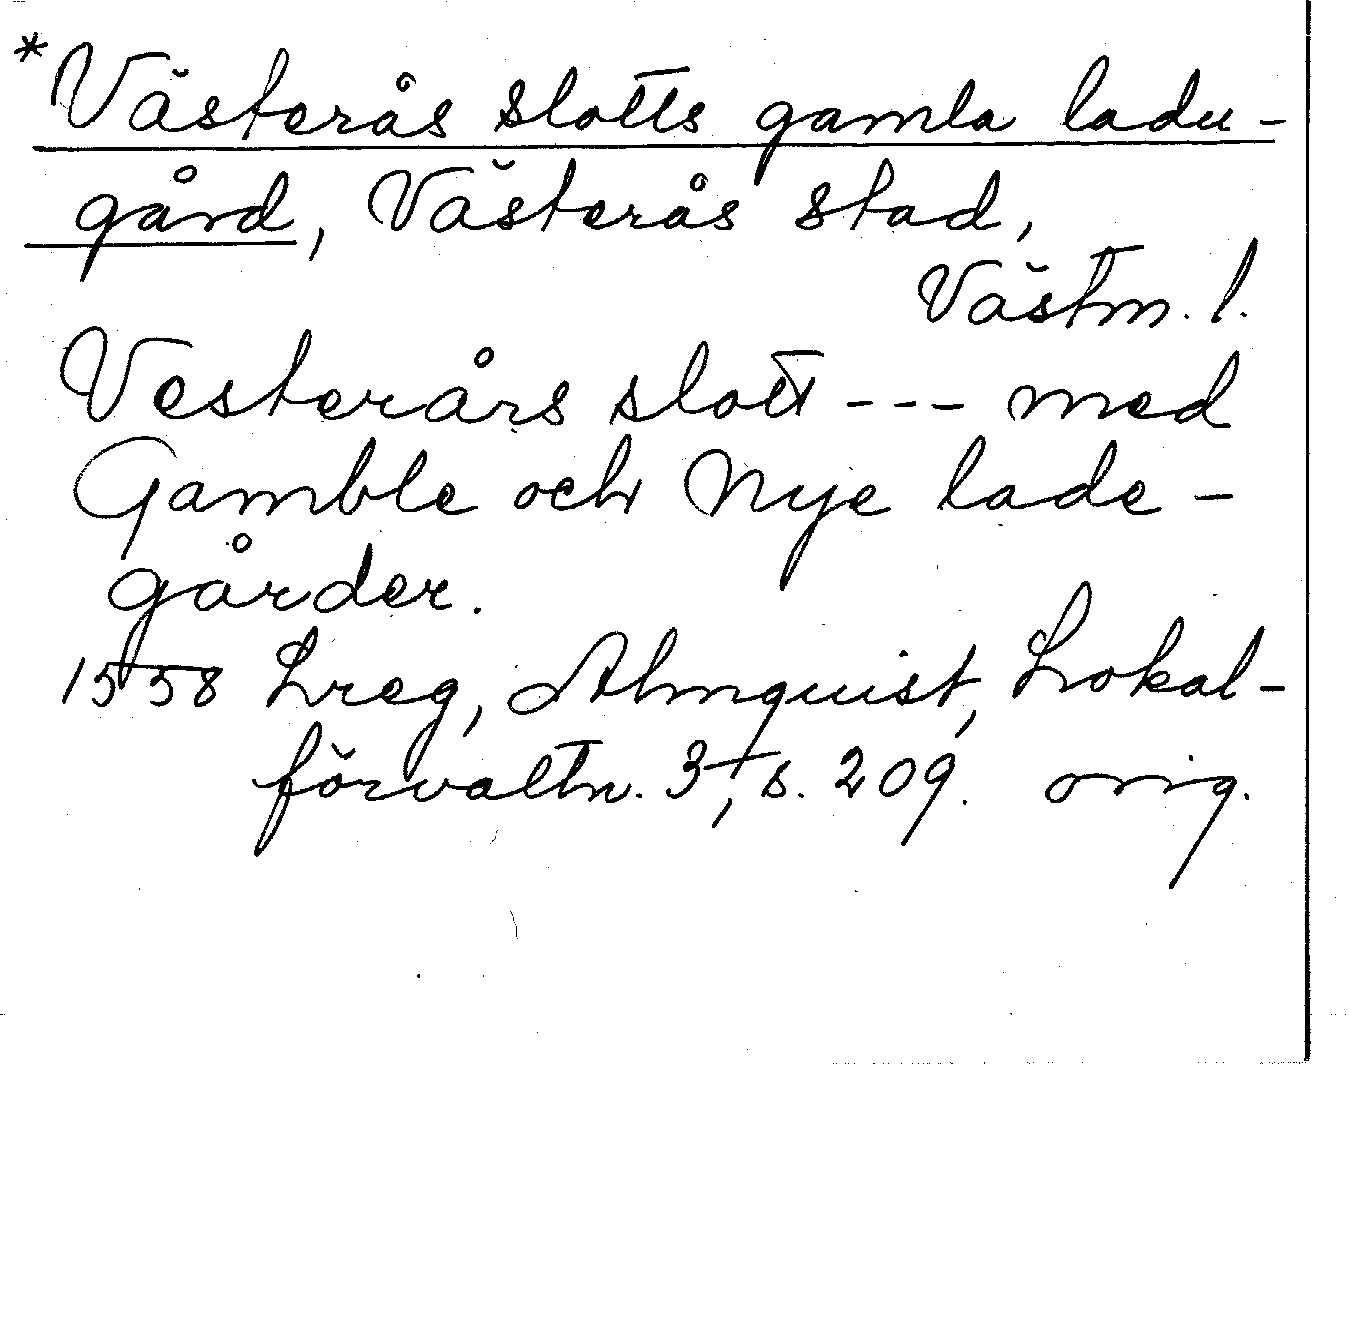 *Västerås slotts gamla ladu-
gård, Västerås stad,
Västm. l.
Vesterårs slott --- med
Gamble och Nye lade-
gårder.
1558 Lreg, Almquist, Lokal-
förvaltn. 3, s. 209. orig.